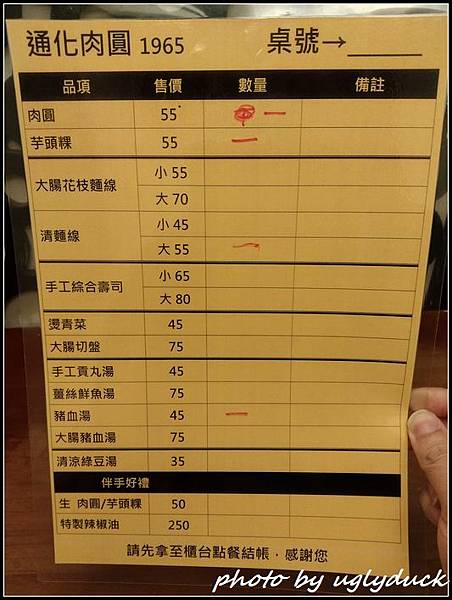 通化肉圓 1965 桌號→
品項 售價 數量 備註
肉圓 55 一
芋頭粿 55 一
大腸花枝麵線 小 55
大 70
清麵線 小 45
大 55 一
手工綜合壽司 小 65
大 80
燙青菜 45
大腸切盤 75
手工貢丸湯 45
薑絲鮮魚湯 75
豬血湯 45 一
大腸豬血湯 75
清涼綠豆湯 35
伴手好禮
生 肉圓/芋頭粿 50
特製辣椒油 250
請先拿至櫃台點餐結帳，感謝您
photo by uglyduck